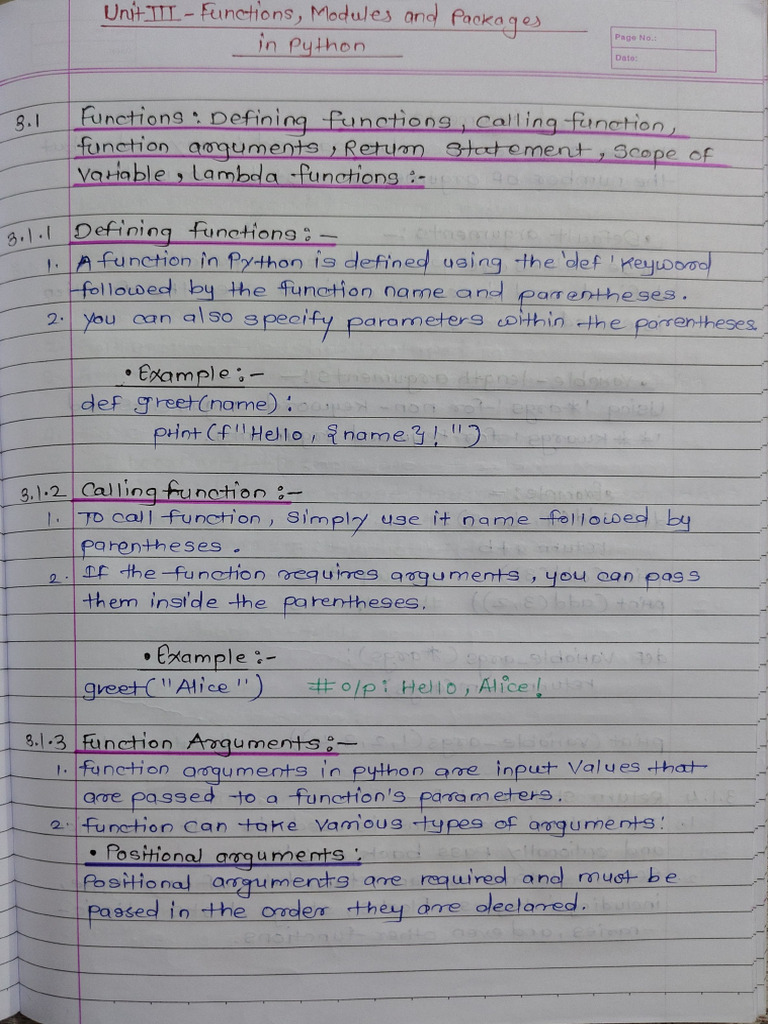 Unit III - Functions, Modules and Packages
in Python
Page No.:
Date:
3.1 Functions: Defining functions, calling function,
function arguments, Return Statement, Scope of
Variable, Lambda functions :-
3.1.1 Defining functions :-
1. A function in Python is defined using the 'def' keyword
followed by the function name and parentheses.
2. You can also specify parameters within the parentheses
• Example :-
def greet(name):
print(f"Hello, {name}!")
3.1.2 Calling function :-
1. To call function, simply use it name followed by
parentheses.
2. If the function requires arguments, you can pass
them inside the parentheses.
• Example :-
greet("Alice") # o/p: Hello, Alice!
3.1.3 Function Arguments :-
1. function arguments in python are input values that
are passed to a function's parameters.
2. function can take various types of arguments:
• Positional arguments:
Positional arguments are required and must be
passed in the order they are declared.